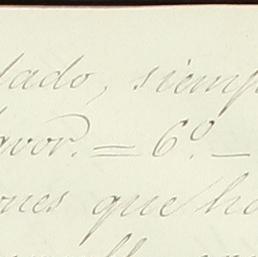 lado, siemp
avor. = 6º. -
ones que ha